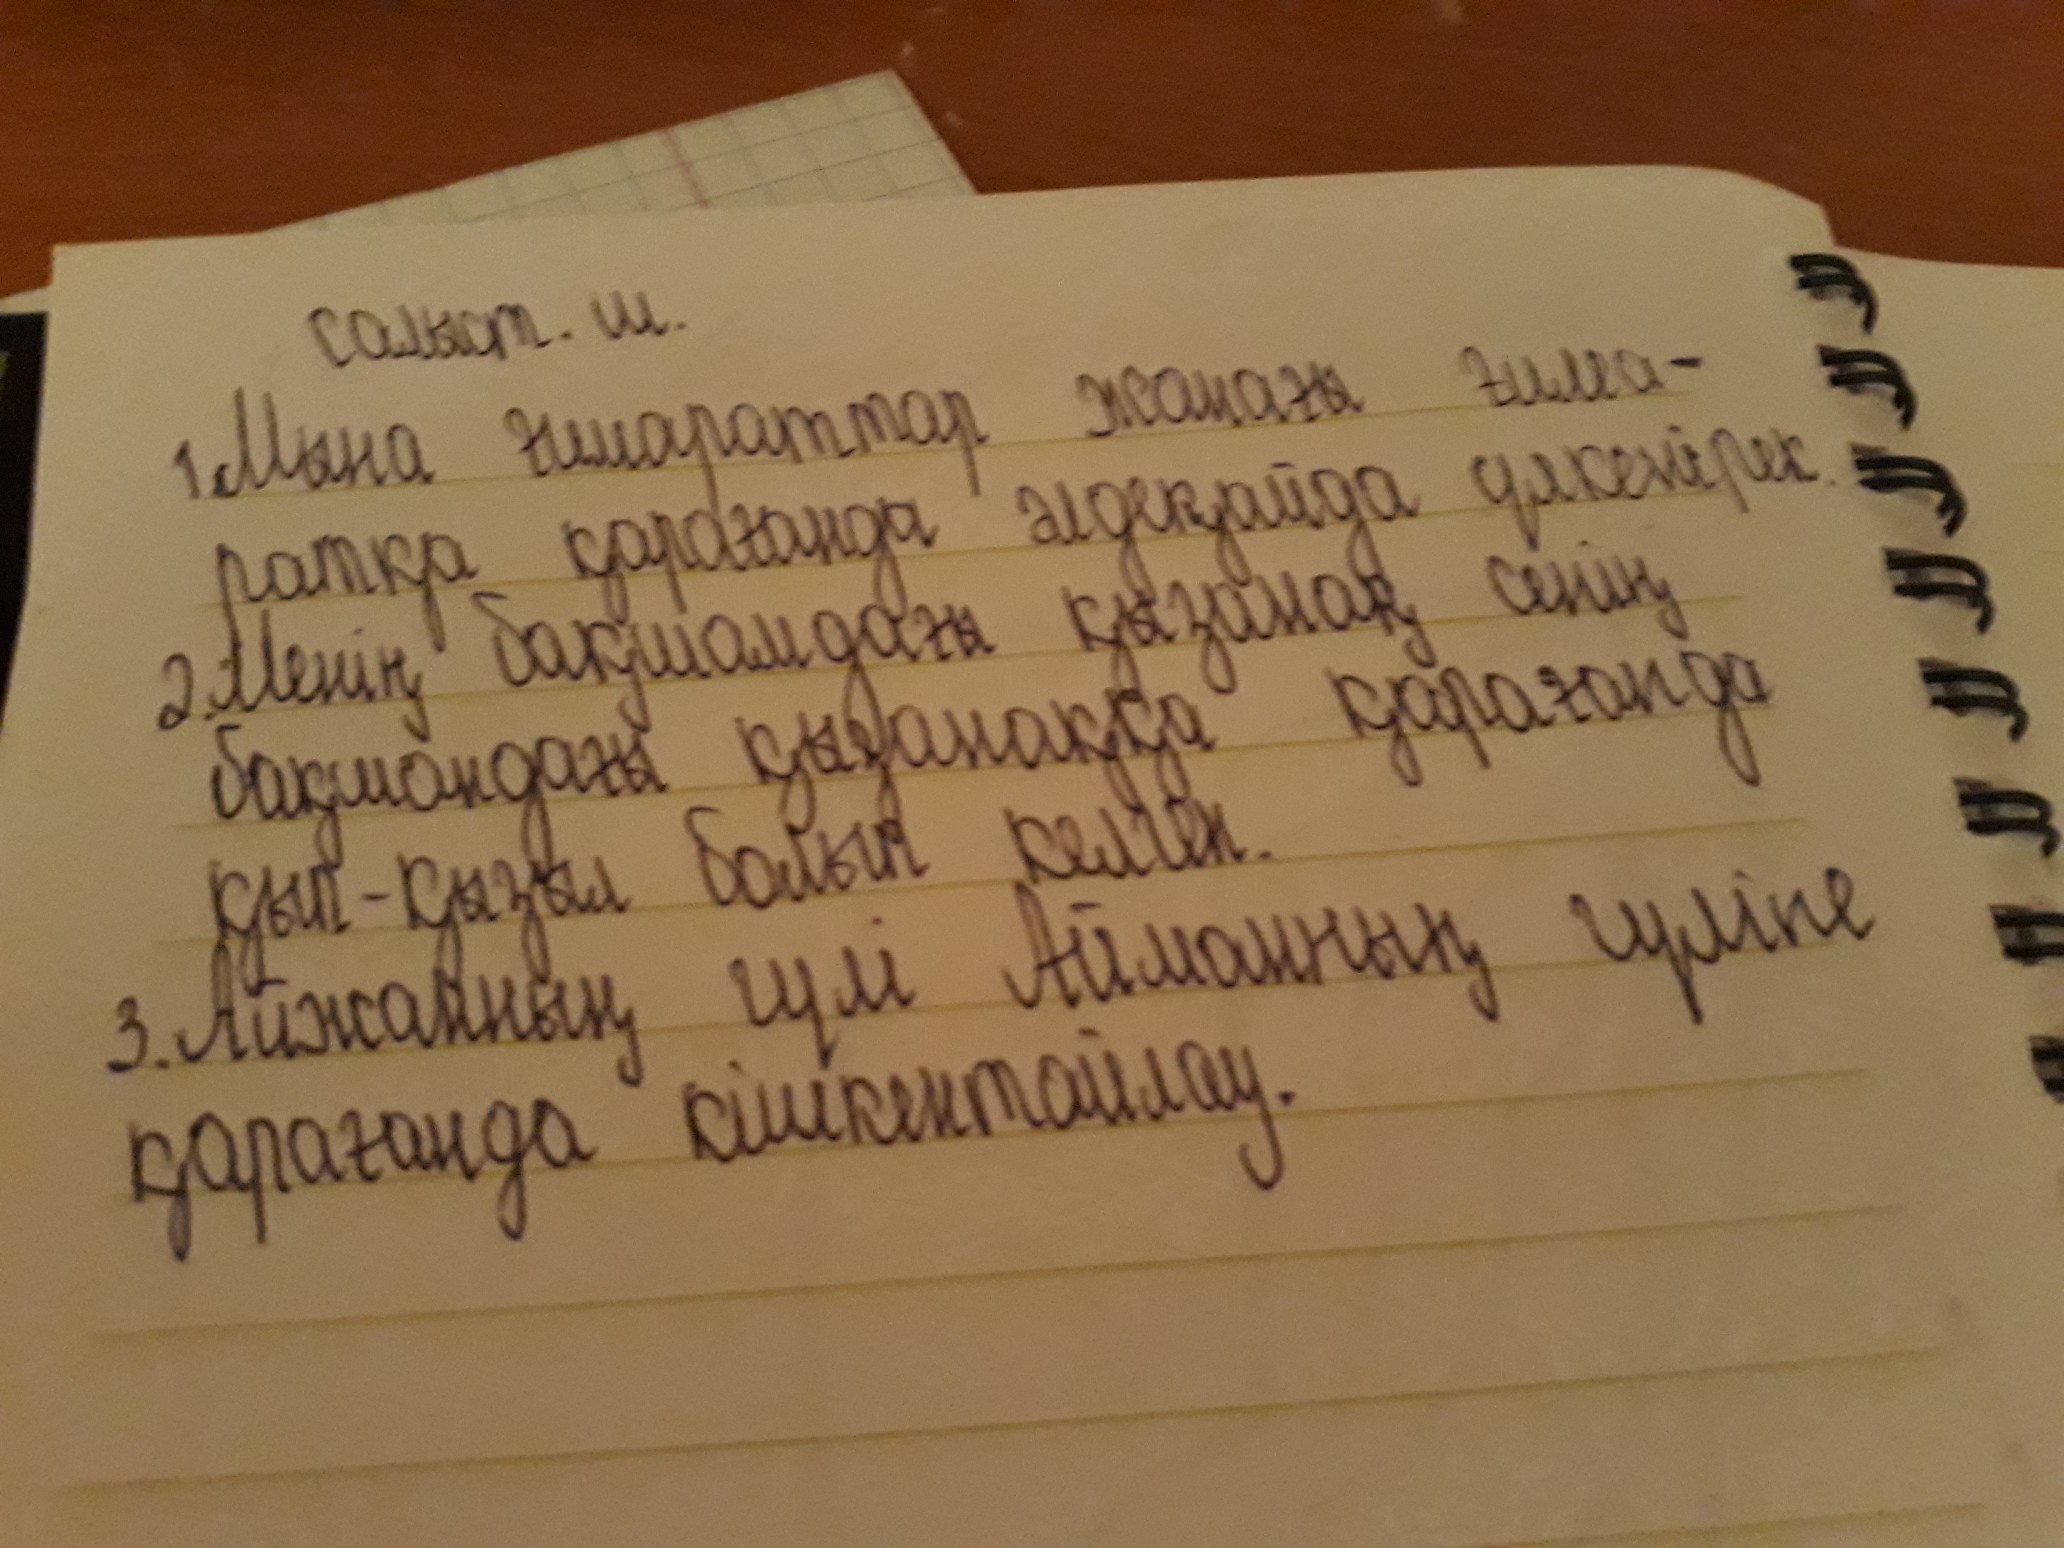 салыст. ш.
1. Мына ғимараттар жаңағы ғима-
ратқа қарағанда әлдеқайда үлкенірек.
2. Менің бақшамдағы қызанақ сенің
бақшаңдағы қызанаққа қарағанда
қып-қызыл болып келген.
3. Айжанның гүлі Айманның гүліне
қарағанда кішкентайлау.